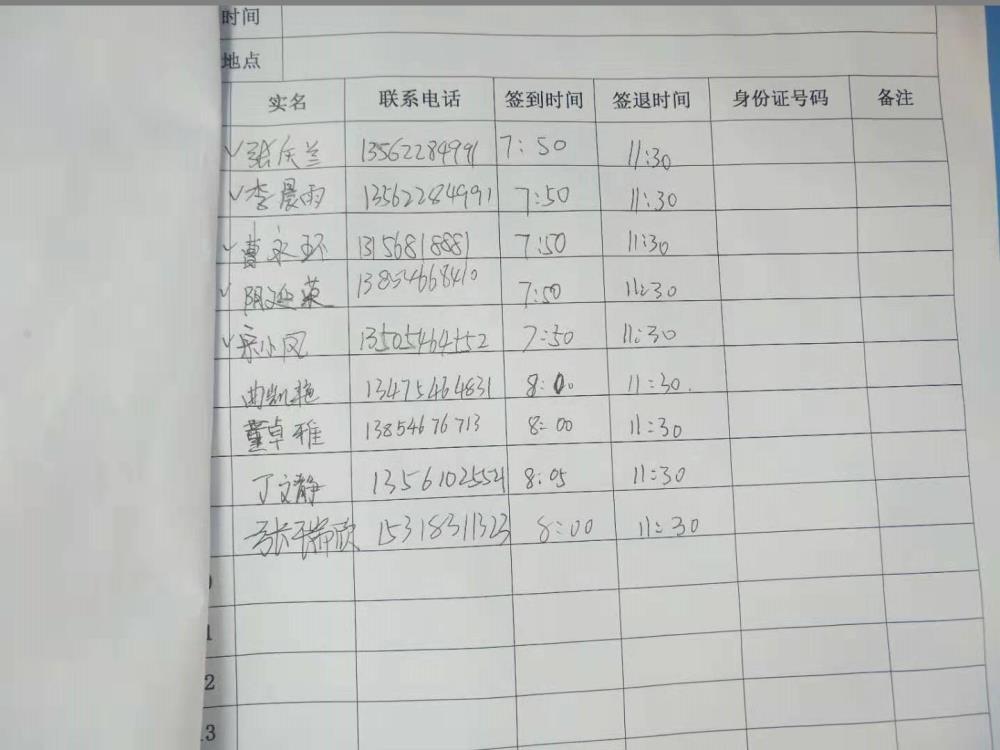 时间
地点
实名 联系电话 签到时间 签退时间 身份证号码 备注
✓张庆兰 13562284991 7:50 11:30
✓李晨雨 13562284991 7:50 11:30
✓曹永环 13156818881 7:50 11:30
✓阴延荣 13854668410 7:50 11:30
✓宗小凤 13505464552 7:50 11:30
曲凯艳 13475464831 8:00 11:30.
董卓雅 13854676713 8:00 11:30
丁文静 13561025521 8:05 11:30
张瑞欣 15318311323 8:00 11:30
2
13